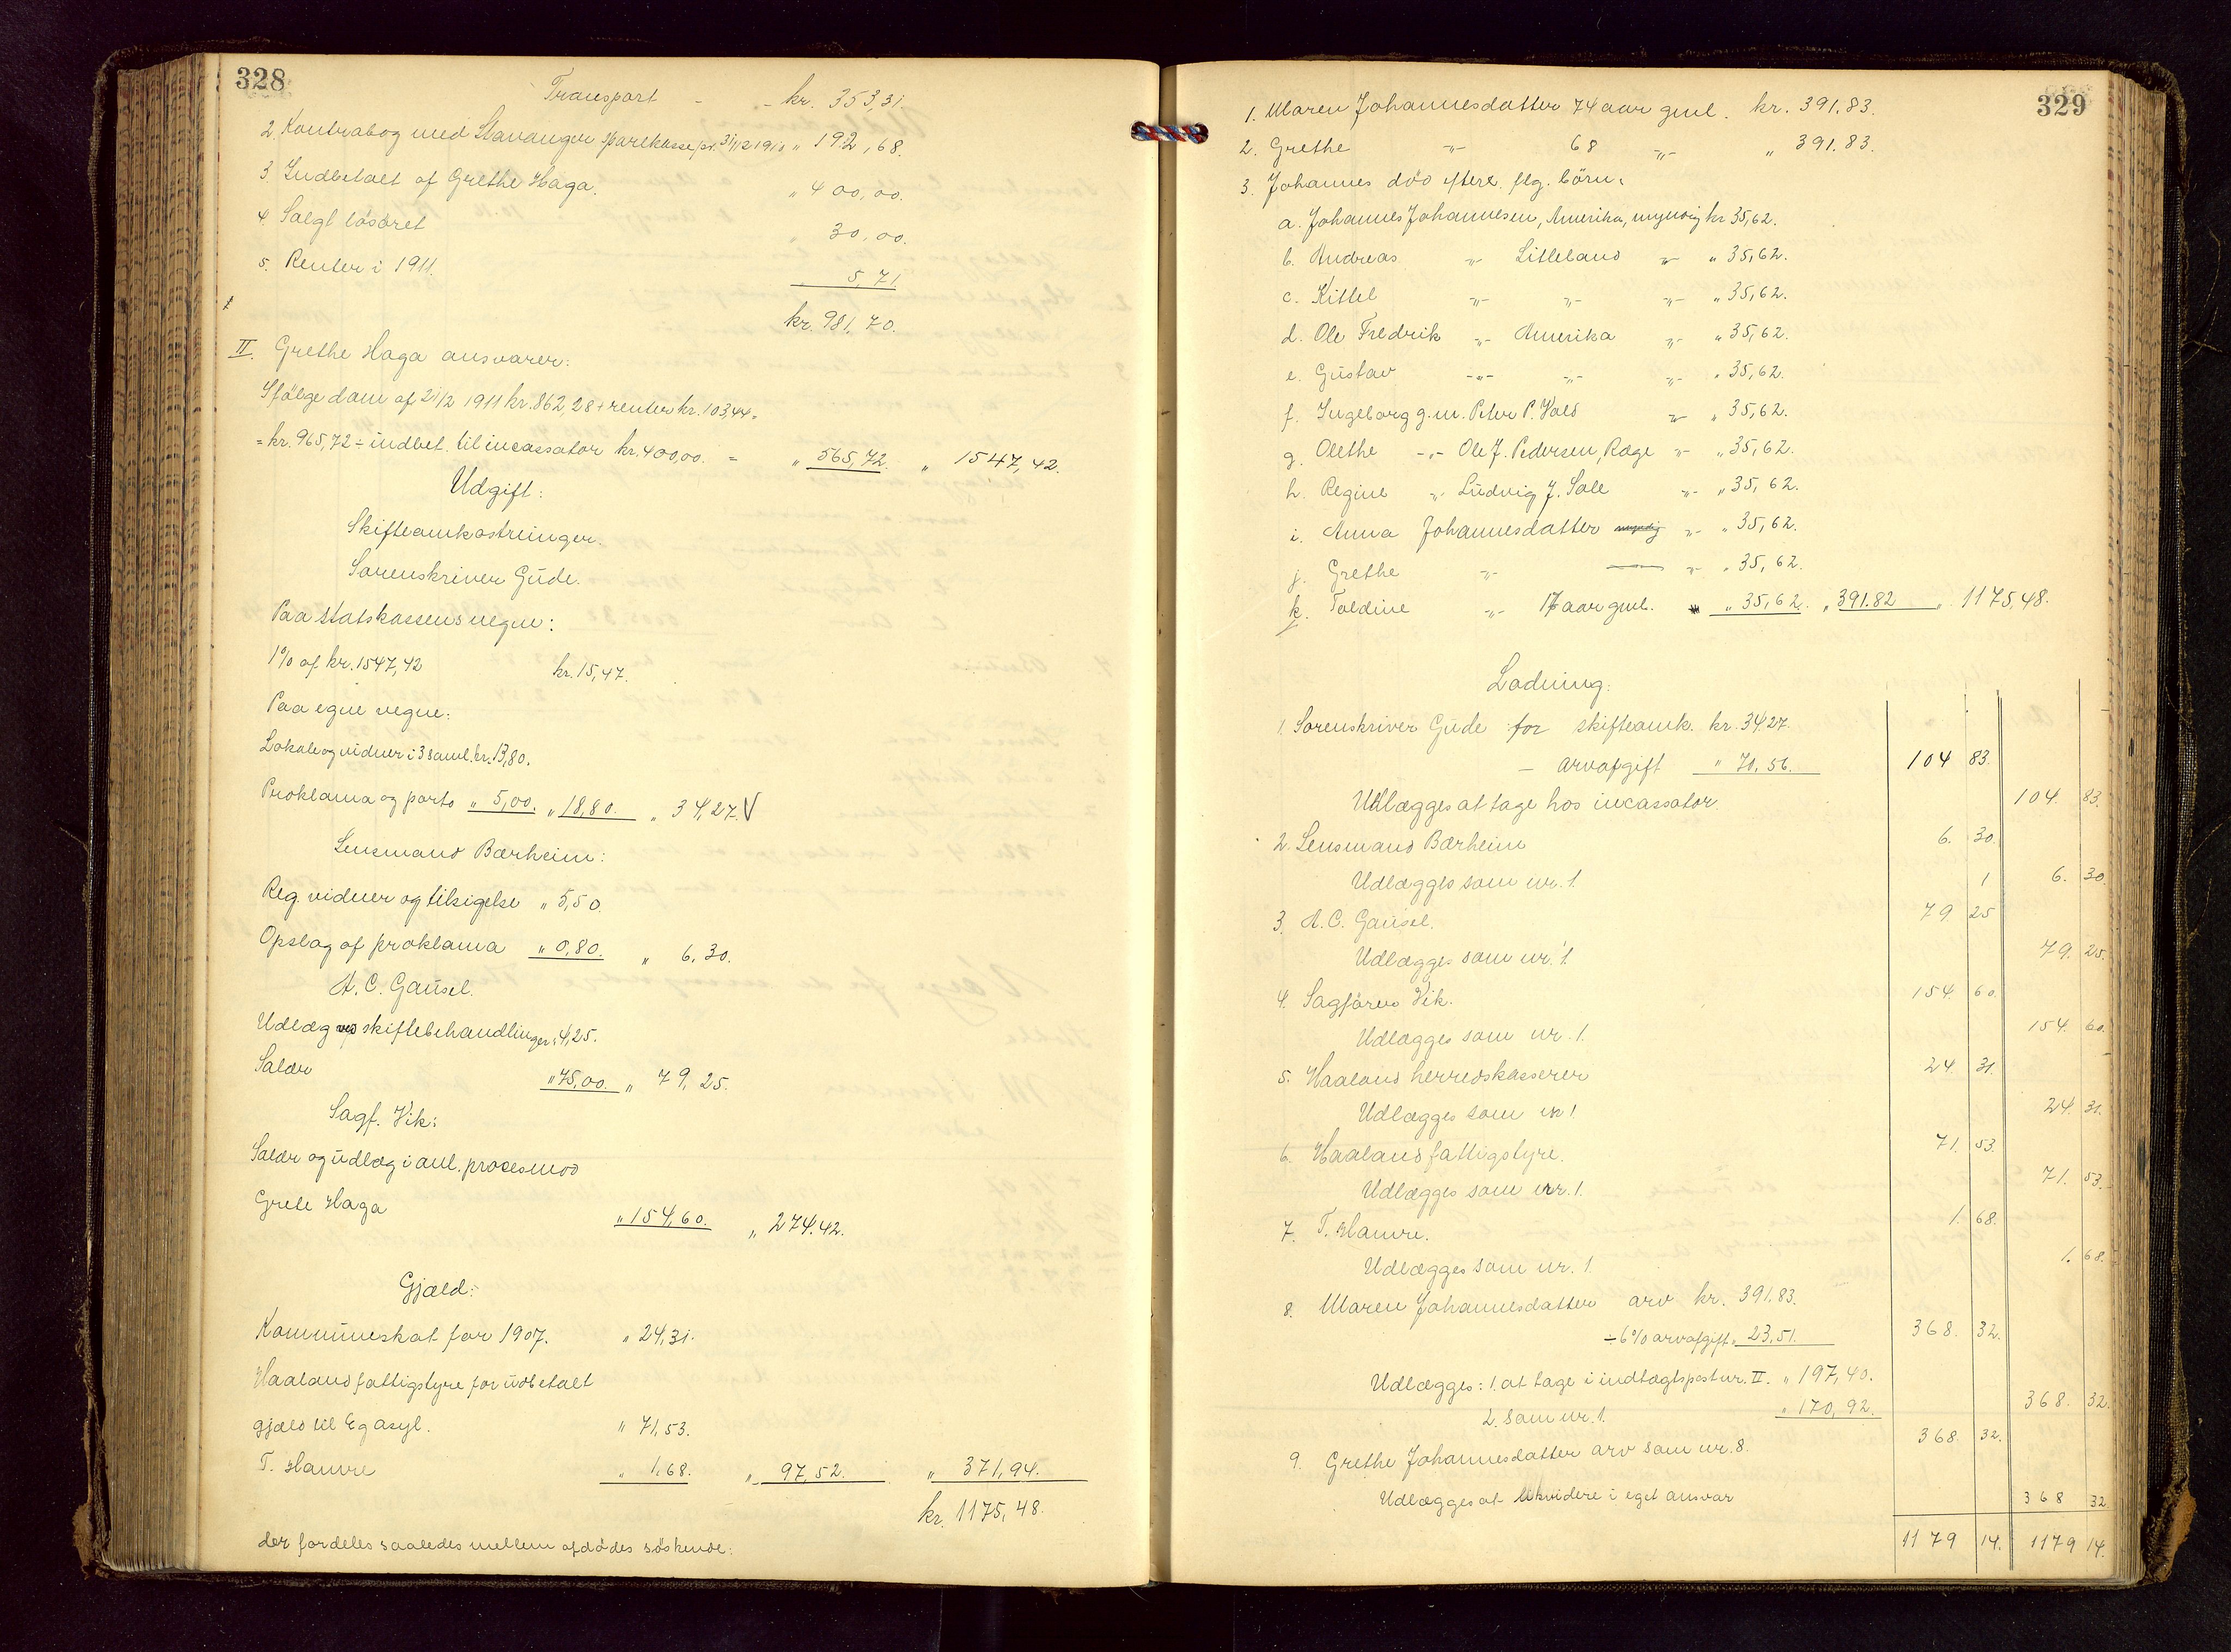 328
Transport - - kr. 353,31.
2. Kontrabog med Stavanger sparekasse pr. 31/12 1910 " 192,68.
3. Indbetalt af Grethe Haga. " 400,00.
4. Solgt lösöret 30,00.
5. Renter i 1911. " 5,71.
kr. 981,70.
II. Grethe Haga ansvarer:
Ifölge dom af 21/2 1911 kr. 862,28 + renter kr. 103,44 =
= kr. 965,72 ÷ indbet. til incassator kr. 400,00. = " 565,72. " 1547,42.
Udgift:
Skifteomkostninger.
Sorenskriver Gude.
Paa statskassens vegne:
1% af kr. 1547,42 kr. 15,47.
Paa egne vegne:
Lokale og vidner i 3 saml. kr. 13,80.
Proklama og porto " 5,00. " 18,80. " 34,27. V
Lensmand Bærheim:
Reg. vidner og tilsigelse " 5,50.
Opslag af proklama " 0,80. " 6,30.
A. C. Gausel.
Udlæg ved skiftebehandlingen " 4,25.
Salær " 75,00. " 79,25.
Sagf. Vik:
Salær og udlæg i anl. proces mod
Grete Haga " 154,60. " 274,42.
Gjæld:
Kommuneskat for 1907. " 24,31.
Haaland fattigstyre for udbetalt
gjæld til Eg asyl. " 71,53.
T. Hauvre " 1,68. " 97,52. " 371,94.
kr. 1175,48.
der fordeles saaledes mellem afdødes søskende:
329
1. Maren Johannesdatter 74 aar gml. kr. 391.83.
2. Grethe -"- 68 -"- " 391.83.
3. Johannes död efterl. flg. börn:
a. Johannes Johannesen, Amerika, myndig kr 35,62.
b. Andreas -"- Litleland -"- " 35,62.
c. Kittel -"- -"- -"- " 35,62.
d. Ole Fredrik -"- Amerika -"- " 35,62.
e. Gustav -"- -"- -"- " 35,62.
f. Ingeborg g.m. Peter P. Vold -"- " 35,62.
g. Olethe -"- Ole J. Pedersen, Ræge -"- " 35,62.
h. Regine -"- Ludvig J. Sole -"- " 35,62.
i. Anna Johannesdatter myndig -"- " 35,62.
j. Grethe -"- -"- " 35,62.
k. Toldine -"- 17 aar gml. " 35,62. " 391.82 " 1175,48.
Lodning:
1. Sorenskriver Gude for skifteomk. kr. 34.27.
— arvafgift " 70,56. 104 83.
Udlægges at tage hos incassator. 104. 83.
2. Lensmand Bærheim 6. 30.
Udlægges som nr. 1. 6. 30.
3. A. C. Gausel. 79 25
Udlægges som nr. 1. 79. 25.
4. Sagförer Vik. 154. 60.
Udlægges som nr. 1. 154. 60.
5. Haaland herredskasserer 24. 31.
Udlægges som nr 1. 24. 31.
6. Haaland fattigstyre. 71. 53.
Udlægges som nr. 1. 71. 53.
7. T. Hauvre. 1. 68.
Udlægges som nr. 1. 1. 68.
8. Maren Johannesdatter arv kr. 391.83.
÷ 6% arvafgift " 23,51. 368. 32.
Udlægges: 1. at tage i indtægtspost nr. II. " 197,40.
2. som nr. 1. " 170,92. 368. 32.
9. Grethe Johannesdatter arv som nr. 8. 368. 32.
Udlægges at likvidere i eget ansvar 368 32
1179 14. 1179 14.